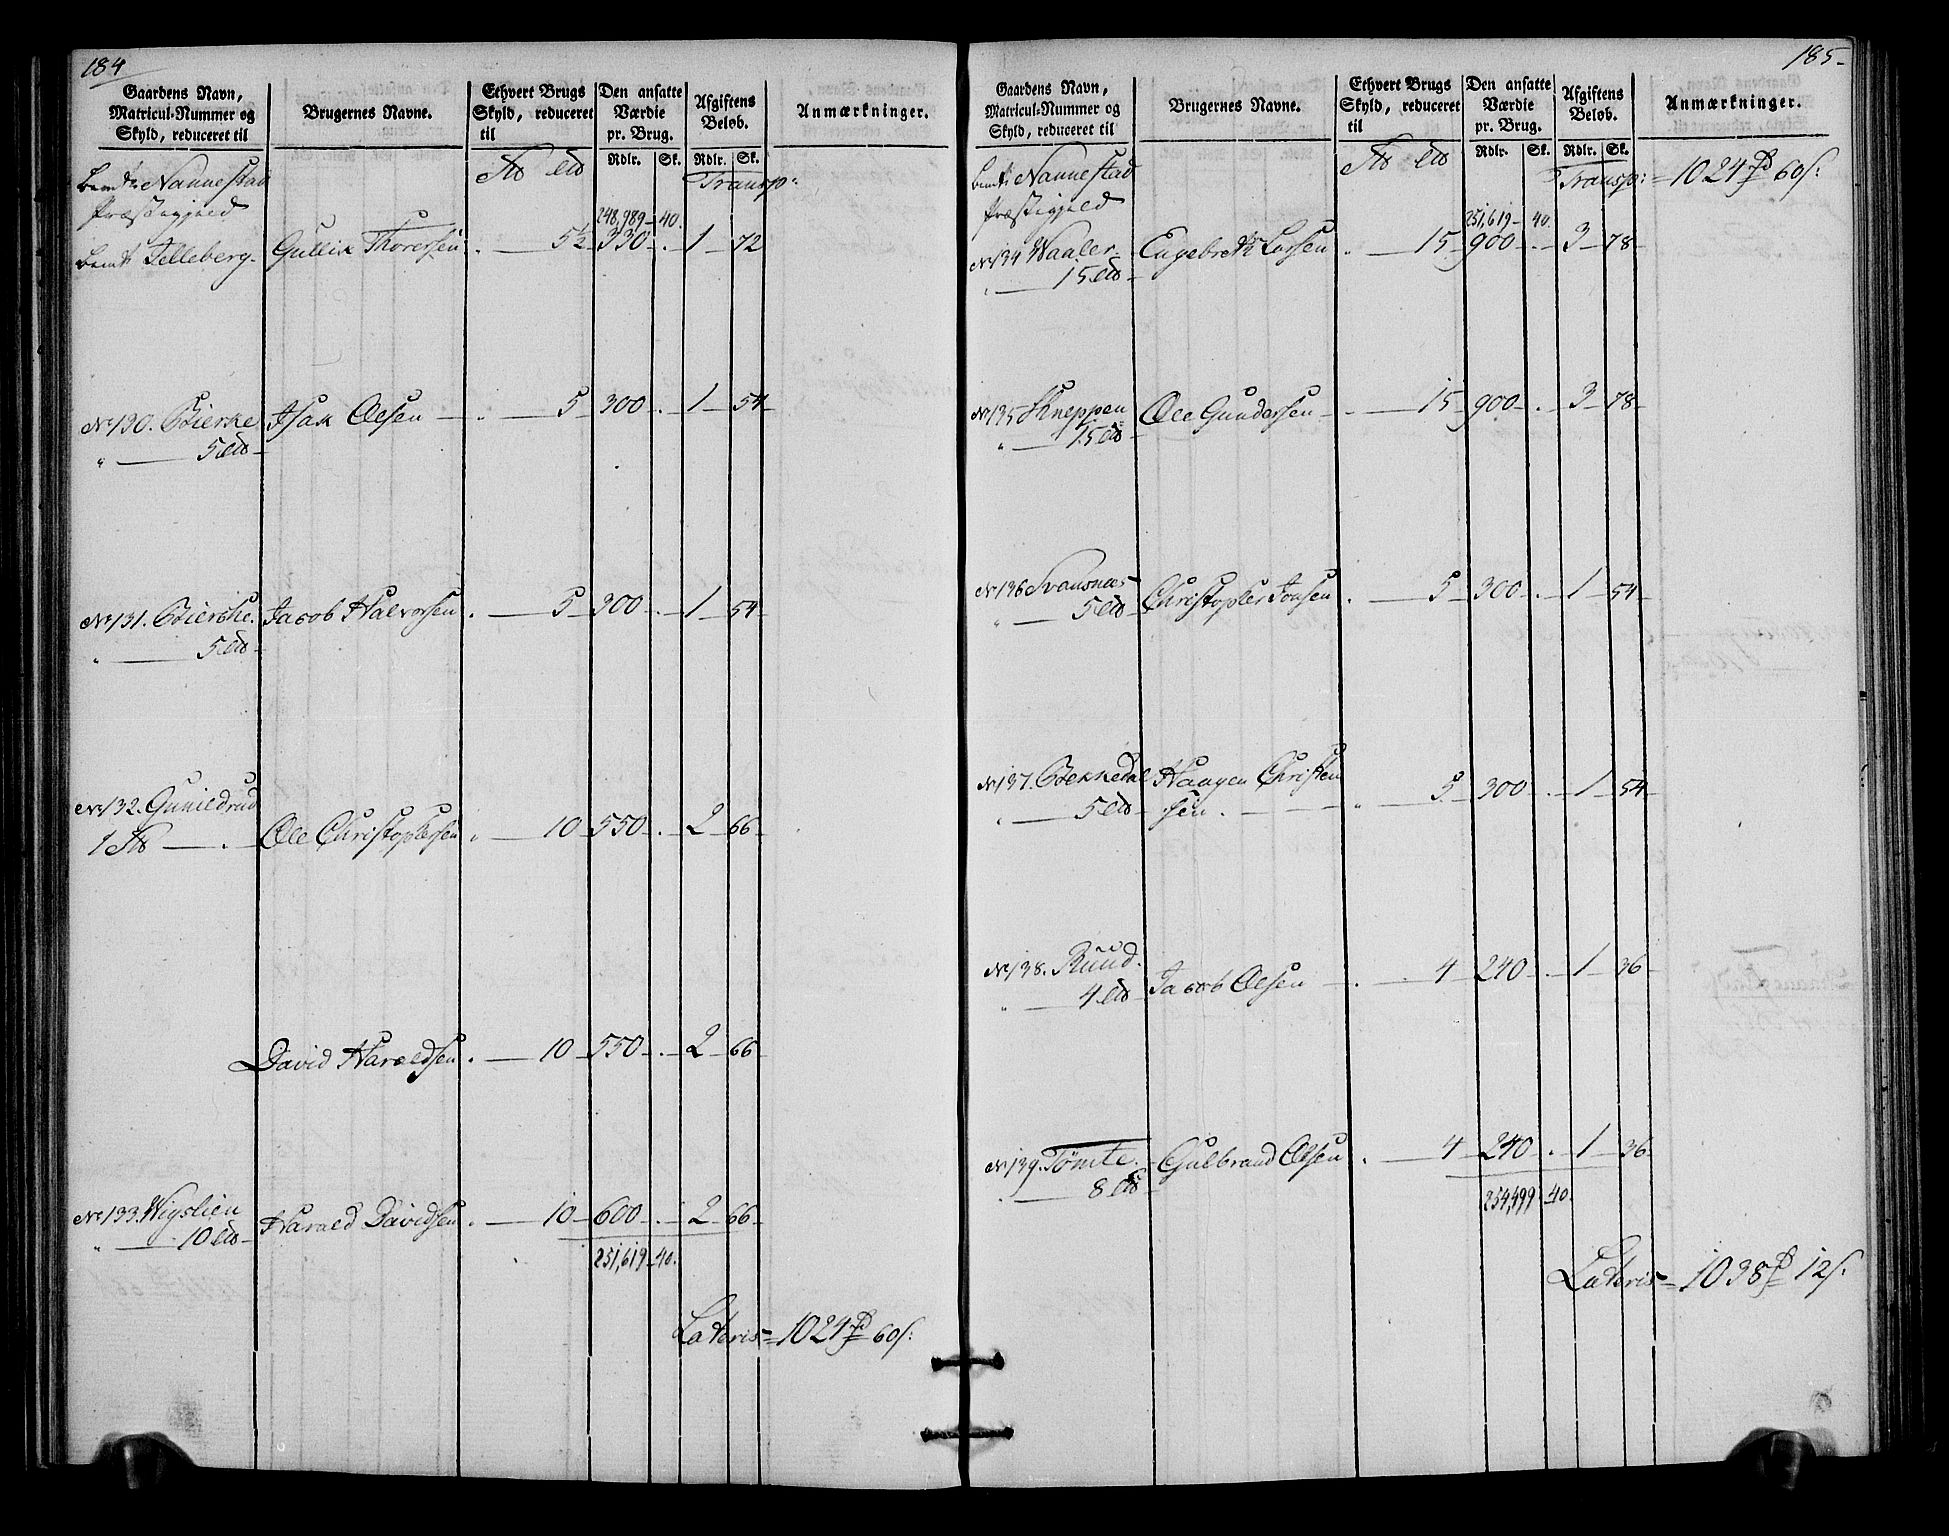 184
Gaardens Navn, Matricul-Nummer og Skyld, reduceret til | Brugernes Navne. | Ethvert Brugs Skyld, reduceret til | Den ansatte Værdie pr. Brug. | Afgiftens Beløb. | Anmærkninger.
Rdlr. | Sk. | Rdlr. | Sk.
bemte Nannestad
Præstegjeld
Transp:
248,989 - 40.
bemte Telleberg - Gullik Thorersen . - 5½ - 330 - . - 1 - 72
No 130. Bierke Isak Olsen - „ - 5 - 300 - . - 1 - 54
„ - 5
No 131. Bierke. Jacob Halvorsen . - 5 - 300 - . - 1 - 54
„ - 5
No 132. Gunildrud
1 - . Ole Christophersen „ - 10 - 550 - . - 2 - 66
David Haraldsen . - 10 - 550 - . - 2 - 66
No 133. Wigslien Harald Davidsen . - 10 - 600 - . - 2 - 66
„ - 10
251,619 - 40.
Lateris = 1024 Rd 60 s:
185
Gaardens Navn, Matricul-Nummer og Skyld, reduceret til | Brugernes Navne. | Ethvert Brugs Skyld, reduceret til | Den ansatte Værdie pr. Brug. | Afgiftens Beløb. | Anmærkninger.
Rdlr. | Sk. | Rdlr. | Sk.
bemte Nannestad
Præstegjeld
Transp: = 1024 Rd 60 s:
251,619 - 40.
No 134 Waaler Engebreth Larsen . - 15 - 900 - . - 3 - 78
„ - 15
No 135 Kneppen Ole Gundersen . - 15 - 900 - . - 3 - 78
„ - 15
No 136 Svansnæs Christopher Jonsen . - 5 - 300 - . - 1 - 54
„ - 5
No 137. Bekkedal Haagen Christen
„ - 5 sen . - „ - 5 - 300 - . - 1 - 54
No 138. Ruud.
„ - 4 Jacob Olsen - . - 4 - 240 - . - 1 - 36
No 139. Tømte. Gulbrand Olsen . - 4 - 240 - . - 1 - 36
„ - 8
254,499 - 40.
Lateris = 1038 Rd 12 s: